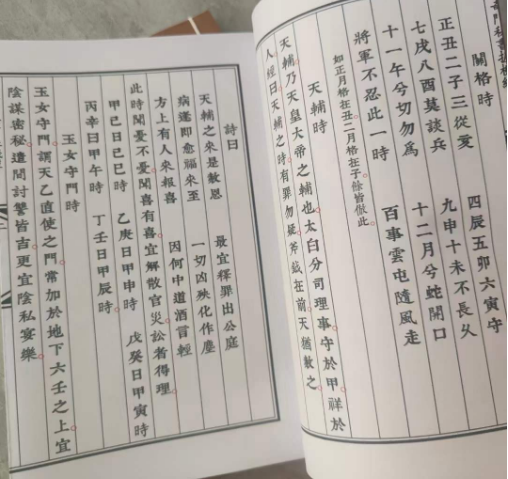 關格時
正丑二子三從愛　四辰五卯六寅守
七戌八酉莫談兵　九申十未不長久
十一午兮切勿為　十二月兮蛇開口
將軍不忍此一時　百事雲屯隨風走
如正月格在丑二月格在子餘皆倣此
天輔時
天輔乃天皇大帝之輔也太白分司理事守於甲祥於
人經曰天輔之時有罪勿疑斧鉞在前天猶赦之
詩曰
天輔之來是赦恩　最宜釋罪出公庭
病遙即愈福來至　一切凶殃化作塵
方上有人來報喜　因何中道酒言輕
此時聞憂不憂聞喜有喜宜解散官災訟者得理
甲巳日巳巳時　乙庚日甲申時　戊癸日甲寅時
丙辛日甲午時　丁壬日甲辰時
玉女守門時
玉女守門謂天乙直使之門常加於地下六壬之上宜
陰謀密秘遺問討讐皆吉更宜陰私宴樂